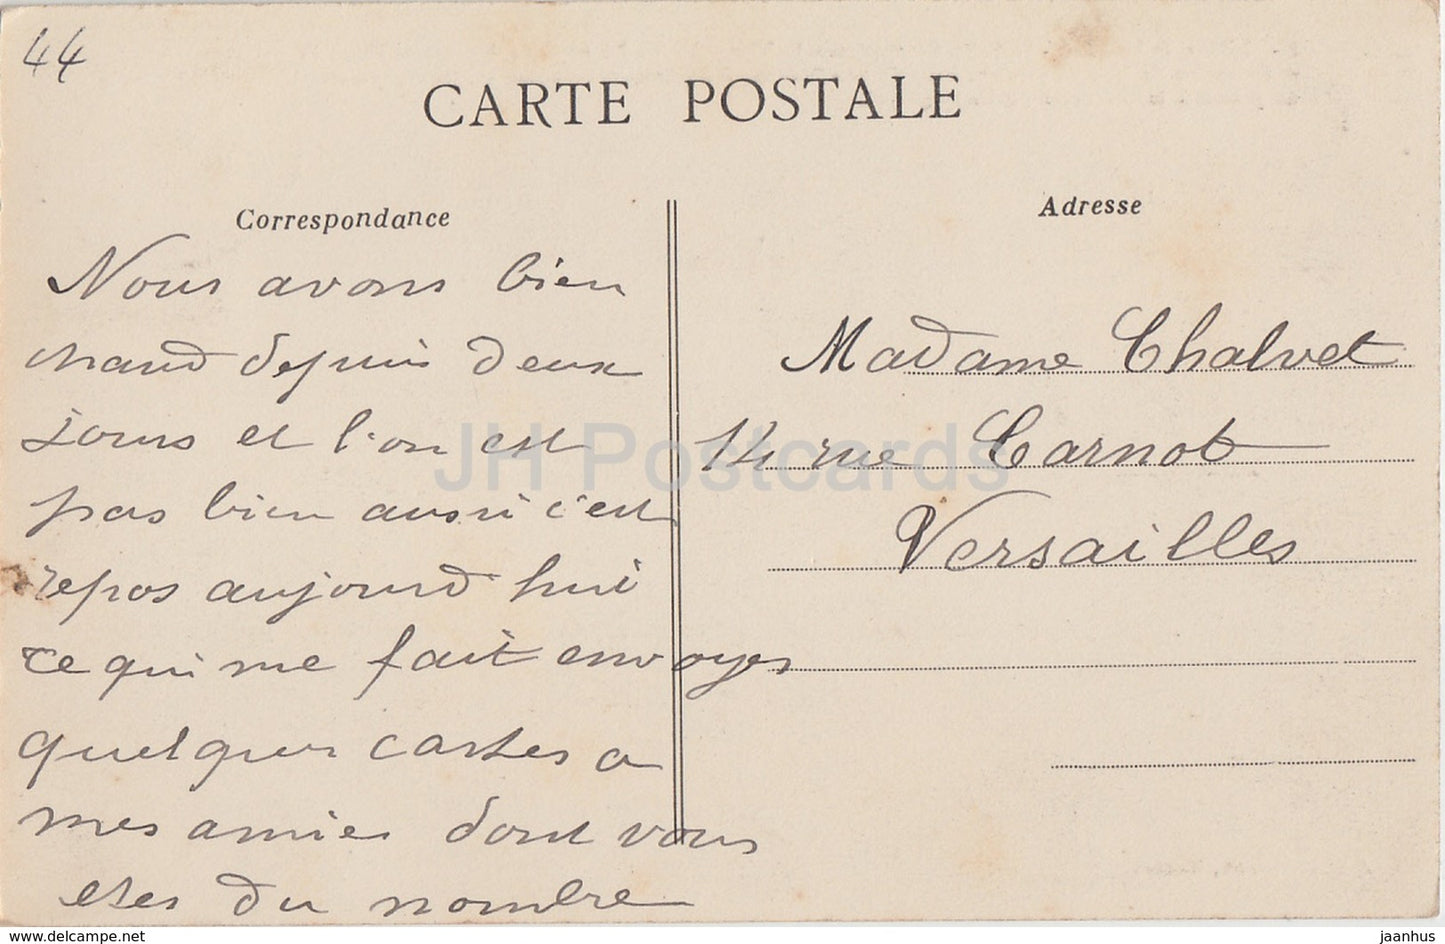 44
CARTE POSTALE
Correspondance
Nous avons bien
chaud depuis deux
jours et l'on est
pas bien aussi c'est
repos aujourd hui
ce qui me fait envoyer
quelques cartes a
mes amies dont vous
etes du nombre
Adresse
Madame Chalvet
14 rue Carnot
Versailles
JH Postcards
www.delcampe.net
jaanhus